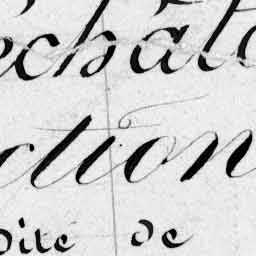 échâte
ction
Dite de